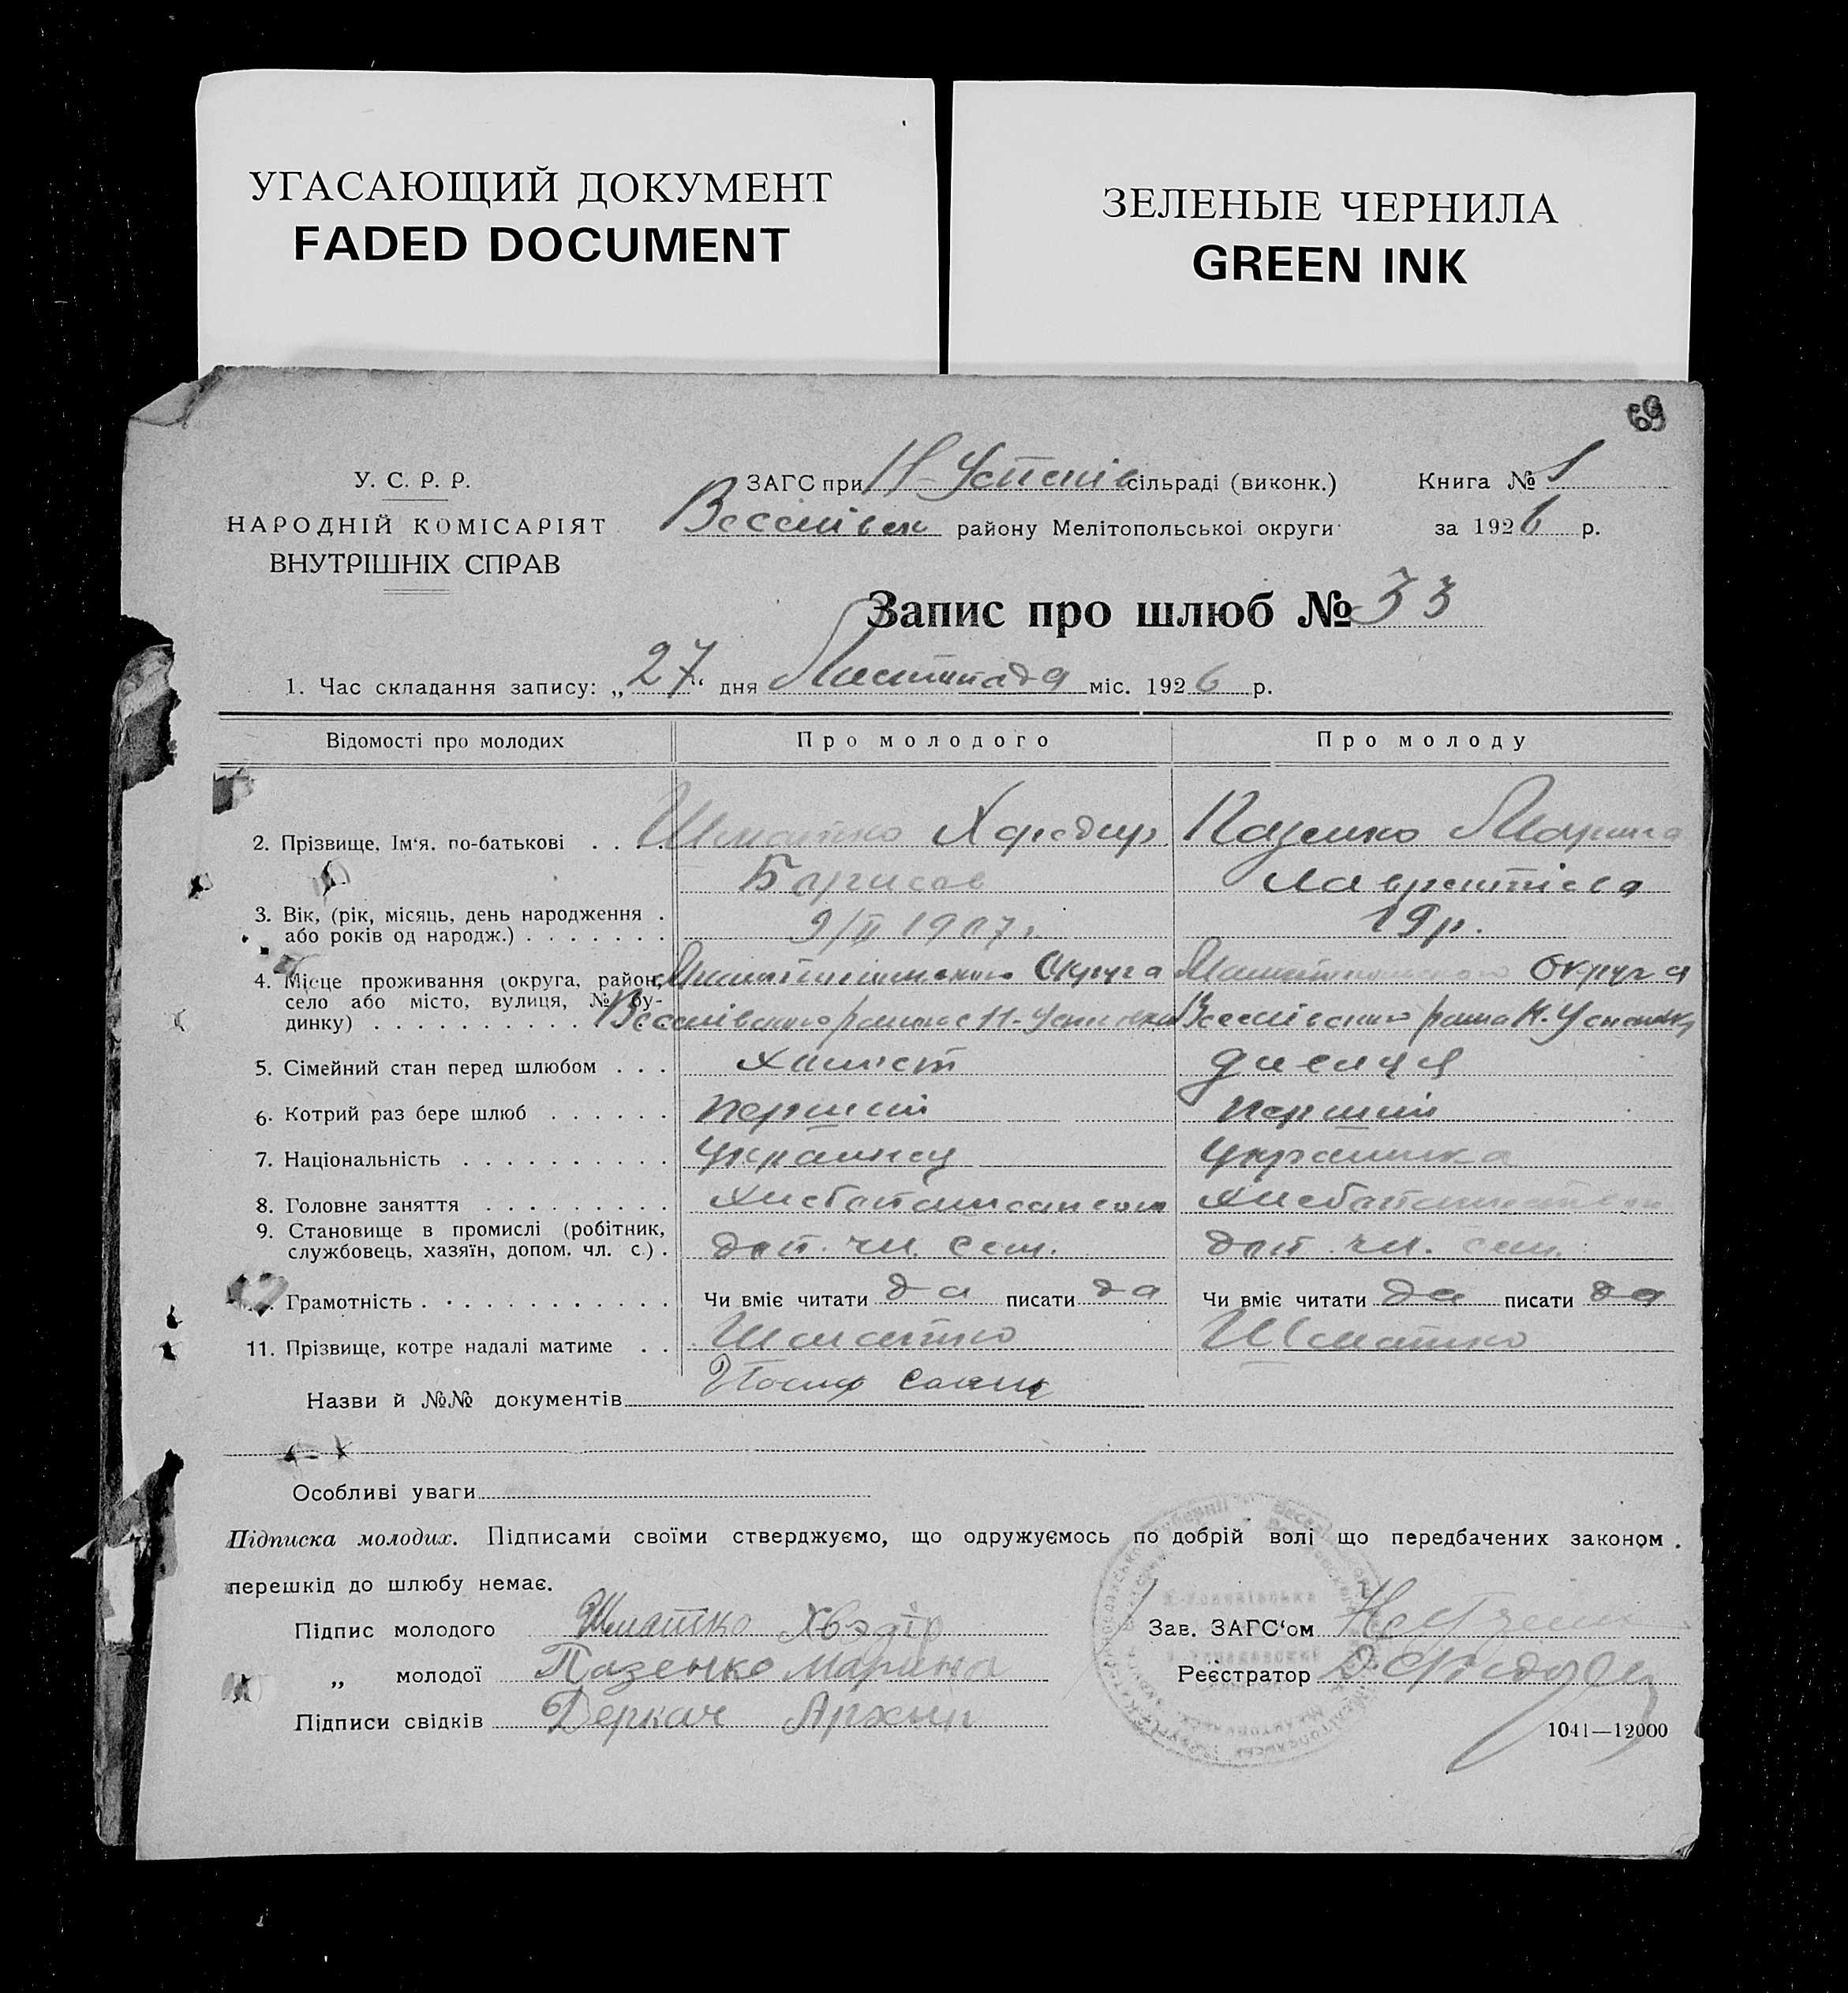 УГАСАЮЩИЙ ДОКУМЕНТ
FADED DOCUMENT
ЗЕЛЕНЫЕ ЧЕРНИЛА
GREEN INK
69
У. С. Р. Р.
НАРОДНІЙ КОМІСАРІЯТ
ВНУТРІШНІХ СПРАВ
ЗАГС при Н-Успенів сільраді (виконк.)
Веселівськ району Мелітопольської округи
Книга № 1
за 1926 р.
Запис про шлюб № 33
1. Час складання запису: „27“ дня Листопада міс. 1926 р.
Відомості про молодих Про молодого Про молоду
2. Прізвище, Ім‘я. по-батькові . . . . Шматко Хведир Пазенко Марина
Борисов Лаврентіева
3. Вік, (рік, місяць, день народження .
або років од народж.) . . . . . . . 9/II 1907 г. 19 р.
4. Місце проживання (округа, район, Округа Округа
село або місто, вулиця, № бу-
динку) . . . . . . . . . . Веселівського району с Н-Успенівка Веселівського Н. Успенівка
5. Сімейний стан перед шлюбом . . . дивиця
6. Котрий раз бере шлюб . . . . . . перший перший
7. Національність . . . . . . . . . . Українец Українка
8. Головне заняття . . . . . . . . .
9. Становище в промислі (робітник,
службовець, хазяїн, допом. чл. с.) . доп. чл. сем. доп. чл. сем.
Грамотність . . . . . . . . . . . . Чи вміє читати да писати да Чи вміє читати да писати да
11. Прізвище, котре надалі матиме . . Шматко Шматко
Назви й №№ документів
Особливі уваги
Підписка молодих. Підписами своїми стверджуємо, що одружуємось по добрій волі що передбачених законом
перешкід до шлюбу немає.
Підпис молодого Шматко Хвэдір
„ молодої Пазенко Марина
Підписи свідків Деркач Архип
Зав. ЗАГС‘ом
Реєстратор
1041—12000